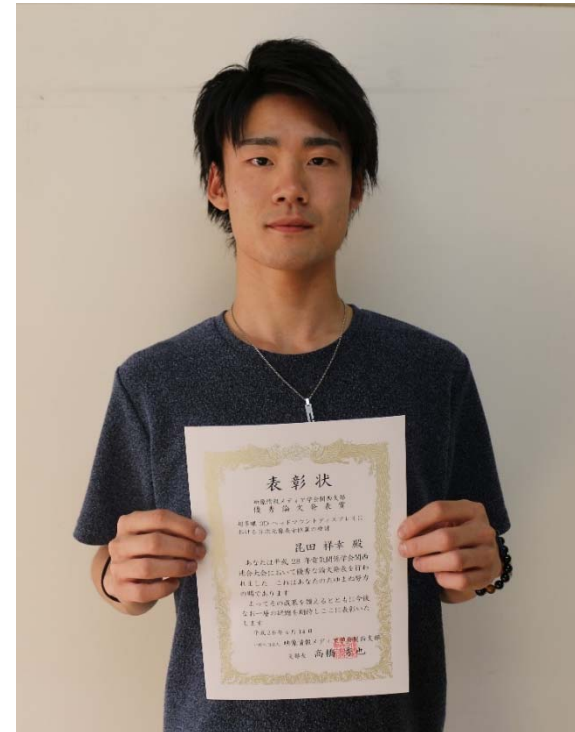 表彰状
映像情報メディア学会関西支部
優秀論文発表賞
おける
昆田 祥幸 殿
あなたは平成 29 年電気関係学会関西
連合大会において優秀な論文発表を行わ
れました これはあなたのたゆまぬ努力
の賜であります
よってその成果を讃えるとともに今後
なお一層の研鑽を期待しここに表彰いた
します
映像情報メディア学会関西支部
支部長 高橋